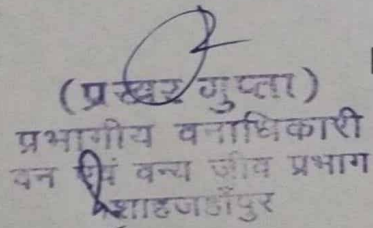 (प्रखर गुप्ता)
प्रभागीय वनाधिकारी
वन एवं वन्य जीव प्रभाग
शाहजहाँपुर